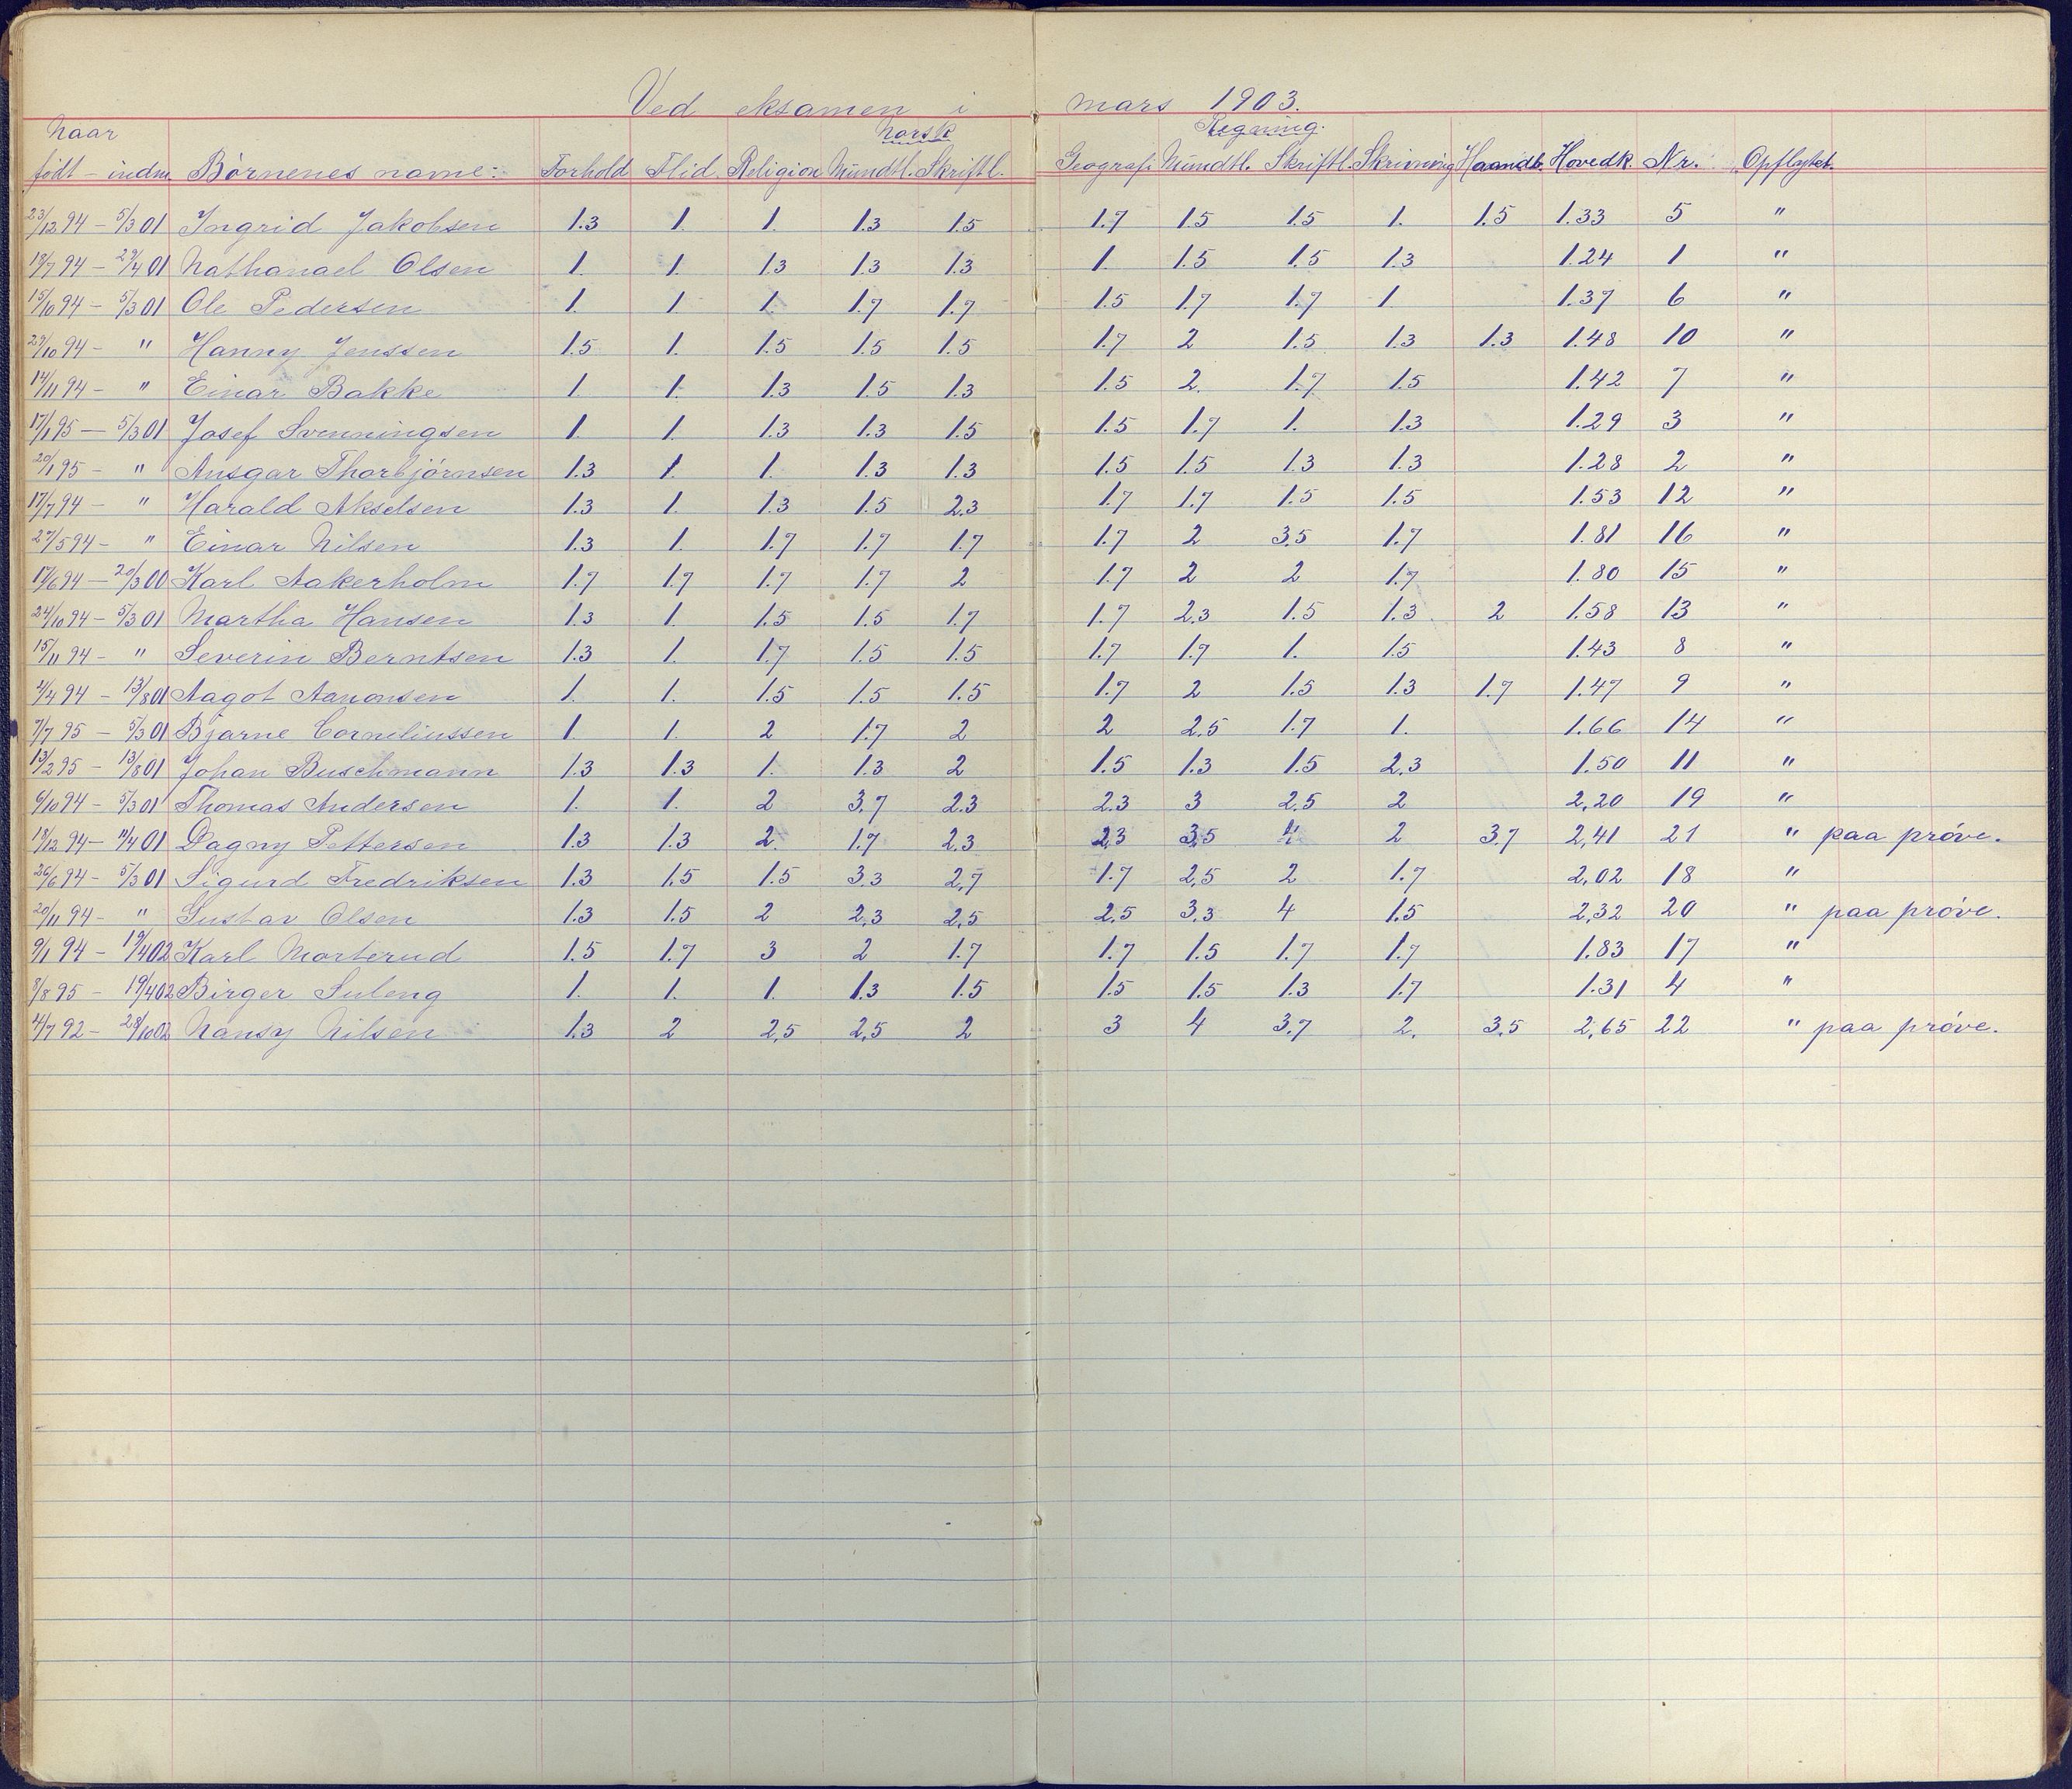 Ved eksamen i mars 1903.
Naar Norsk Regning.
født – indm. Børnenes navne: Forhold Flid. Religion Mundtl. Skriftl. Geografi Mundtl. Skriftl. Skrivning Haandb. Hovedk. Nr. Opflyttet.
23/12 94 – 5/3 01 Ingrid Jakobsen 1.3 1. 1. 1.3 1.5 1.7 1.5 1.5 1. 1.5 1.33 5 "
18/7 94 – 29/4 01 Nathanael Olsen 1. 1. 1.3 1.3 1.3 1. 1.5 1.5 1.3 1.24 1 "
15/10 94 – 5/3 01 Ole Pedersen 1. 1. 1. 1.7 1.7 1.5 1.7 1.7 1. 1.37 6 "
29/10 94 – " Hanny Jenssen 1.5 1. 1.5 1.5 1.5 1.7 2 1.5 1.3 1.3 1.48 10 "
14/11 94 – " Einar Bakke 1. 1. 1.3 1.5 1.3 1.5 2. 1.7 1.5 1.42 7 "
17/1 95 – 5/3 01 Josef Svenningsen 1. 1. 1.3 1.3 1.5 1.5 1.7 1. 1.3 1.29 3 "
20/1 95 – " Ansgar Thorbjørnsen 1.3 1. 1. 1.3 1.3 1.5 1.5 1.3 1.3 1.28 2 "
17/7 94 – " Harald Akselsen 1.3 1. 1.3 1.5 2.3 1.7 1.7 1.5 1.5 1.53 12 "
27/5 94 – " Einar Nilsen 1.3 1. 1.7 1.7 1.7 1.7 2 3.5 1.7 1.81 16 "
17/6 94 – 20/3 00 Karl Aakerholm 1.7 1.7 1.7 1.7 2 1.7 2 2 1.7 1.80 15 "
24/10 94 – 5/3 01 Martha Hansen 1.3 1. 1.5 1.5 1.7 1.7 2.3 1.5 1.3 2 1.58 13 "
15/11 94 – " Severin Berntsen 1.3 1. 1.7 1.5 1.5 1.7 1.7 1. 1.5 1.43 8 "
4/4 94 – 13/8 01 Aagot Aanonsen 1. 1. 1.5 1.5 1.5 1.7 2 1.5 1.3 1.7 1.47 9 "
7/7 95 – 5/3 01 Bjarne Corneliussen 1. 1. 2 1.7 2 2 2.5 1.7 1. 1.66 14 "
13/2 95 – 13/8 01 Johan Buschmann 1.3 1.3 1. 1.3 2 1.5 1.3 1.5 2.3 1.50 11 "
6/10 94 – 5/3 01 Thomas Andersen 1. 1. 2 3.7 2.3 2.3 3 2.5 2 2,20 19 "
18/12 94 – 11/4 01 Dagny Pettersen 1.3 1.3 2. 1.7 2.3 2,3 3,5 4 2 3.7 2,41 21 " paa prøve.
26/6 94 – 5/3 01 Sigurd Fredriksen 1.3 1.5 1.5 3.3 2,7 1.7 2,5 2 1.7 2,02 18 "
20/11 94 – " Gustav Olsen 1.3 1.5 2 2,3 2,5 2,5 3,3 4 1.5 2,32 20 " paa prøve.
9/1 94 – 19/4 02 Karl Morterud 1.5 1.7 3 2 1.7 1.7 1.5 1.7 1.7 1.83 17 "
8/8 95 – 19/4 02 Birger Suleng 1. 1. 1. 1.3 1.5 1.5 1.5 1.3 1.7 1.31 4 "
4/7 92 – 28/10 02 Nansy Nilsen 1.3 2 2,5 2,5 2 3 4 3,7 2. 3,5 2,65 22 " paa prøve.